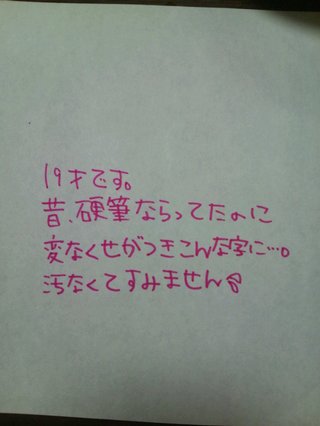 19才です。
昔、硬筆ならってたのに
変なくせがつきこんな字に…。
汚なくてすみません